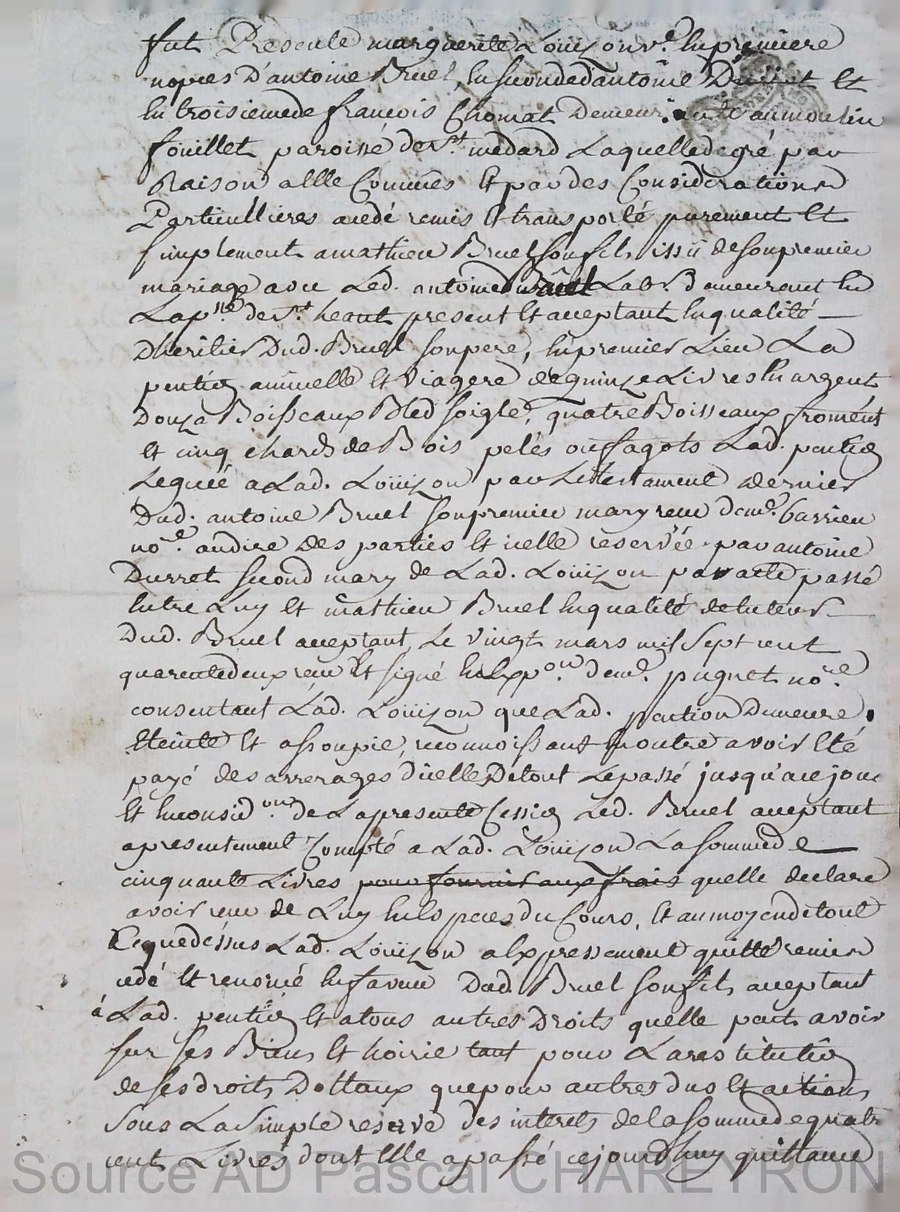 fut Presente marguerite Louizon v.e en premiere
nopces D'antoine Bruel, en seconde d'antoine Durret et
en troisieme de françois Chomat Demeurante au moulin
fouillet paroisse de st. medard Laquelle de gré par
Raison a Elle Connües Et par des Considerations
Particullieres a cedé remis Et transporté purement Et
simplement a mathieu Bruel son fils issü de son premier
mariage avec Led. antoine Bruel Lab.r Demeurant En
La p.sse de st. heant present Et acceptant En qualité
D'heritier Dud. Bruel son pere, En premier Lieu La
pention annuelle Et Viagere de quinze Livres En argent
Douze Boisseaux Bled soigle, quatre Boisseaux froment
Et cinq chards de Bois pelés ou fagots Lad. pention
Leguée a Lad. Louizon par Le testament dernier
Dud. antoine Bruel son premier mary receu De me. barrieu
no.re au dire des parties Et icelle reservée par antoine
Durret second mary de Lad. Louizon par acte passé
Entre Luy Et mathieu Bruel En qualité de tuteur
Dud. Bruel acceptant, Le vingt mars mil sept cent
quarente deux receu Et signé En Exp.on De me. pugnet no.re
consentant Lad. Louizon que Lad. pention Demeure
Eteinte Et assoupie, reconnoissant En outre avoir Eté
payé des arrerages d'icelle De tout Le passé jusqu'a ce jour
Et En consid.on de La presente Cession Led. Bruel acceptant
a presentement Compté a Lad. Louizon La somme de
cinquante Livres pour fournir aux frais quelle declare
avoir receu de Luy En Especes du Cours, Et au moyen de tout
Ce que dessus Lad. Louizon a Expressement quitté remis
cedé Et renoncé En faveur Dud. Bruel son fils acceptant
á Lad. pention Et a tous autres Droits quelle peut avoir
sur ses Biens Et hoirie tant pour La restitution
de ses droits Dottaux que pour autres dus Et actions
sous La simple reserve des interets de la somme de quatre
cent Livres dont Elle a passé ce jourd'huy quittance
Source AD Pascal CHAREYRON